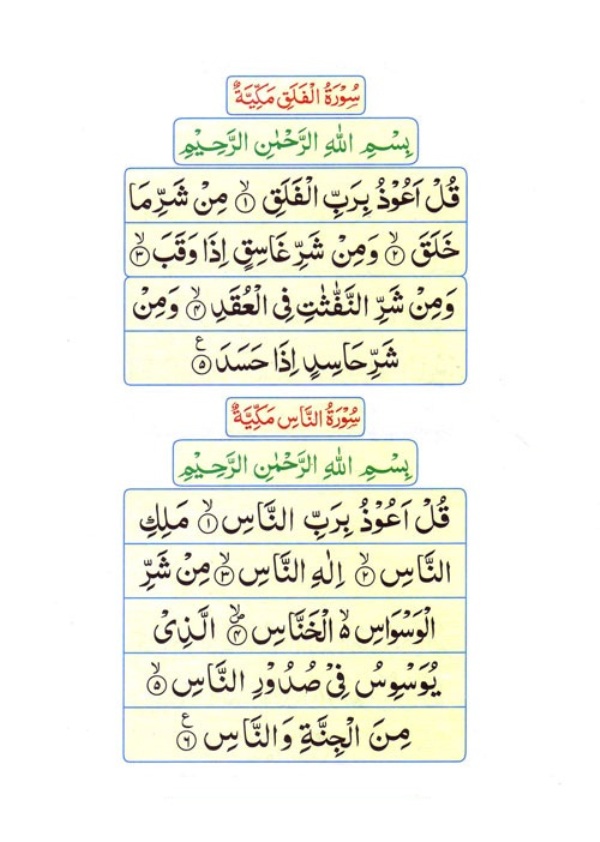 سُوْرَةُ الْفَلَقِ مَكِّيَّةٌ
بِسْمِ اللّٰهِ الرَّحْمٰنِ الرَّحِيْمِ
قُلْ اَعُوْذُ بِرَبِّ الْفَلَقِ ۙ﴿۱﴾ مِنْ شَرِّمَا
خَلَقَ ۙ﴿۲﴾ وَمِنْ شَرِّ غَاسِقٍ اِذَا وَقَبَ ۙ﴿۳﴾
وَمِنْ شَرِّ النَّفّٰثٰتِ فِی الْعُقَدِ ۙ﴿۴﴾ وَمِنْ
شَرِّ حَاسِدٍ اِذَا حَسَدَ ﴿۵﴾ ع
سُوْرَةُ النَّاسِ مَكِّيَّةٌ
بِسْمِ اللّٰهِ الرَّحْمٰنِ الرَّحِيْمِ
قُلْ اَعُوْذُ بِرَبِّ النَّاسِ ۙ﴿۱﴾ مَلِكِ
النَّاسِ ۙ﴿۲﴾ اِلٰهِ النَّاسِ ۙ﴿۳﴾ مِنْ شَرِّ
الْوَسْوَاسِ ۙ۬ الْخَنَّاسِ ۪ۙ﴿۴﴾ الَّذِیْ
يُوَسْوِسُ فِیْ صُدُوْرِ النَّاسِ ۙ﴿۵﴾
مِنَ الْجِنَّةِ وَالنَّاسِ ﴿۶﴾ ع